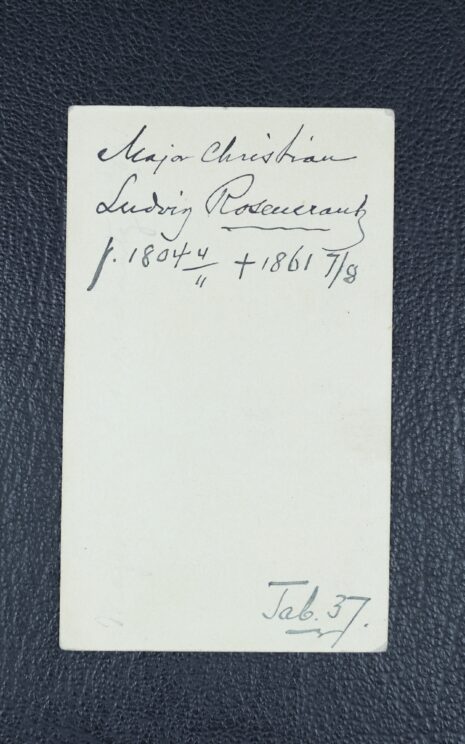 Major Christian
Ludvig Rosencrantz
f. 1804 4/11 + 1861 7/8
Tab. 37.